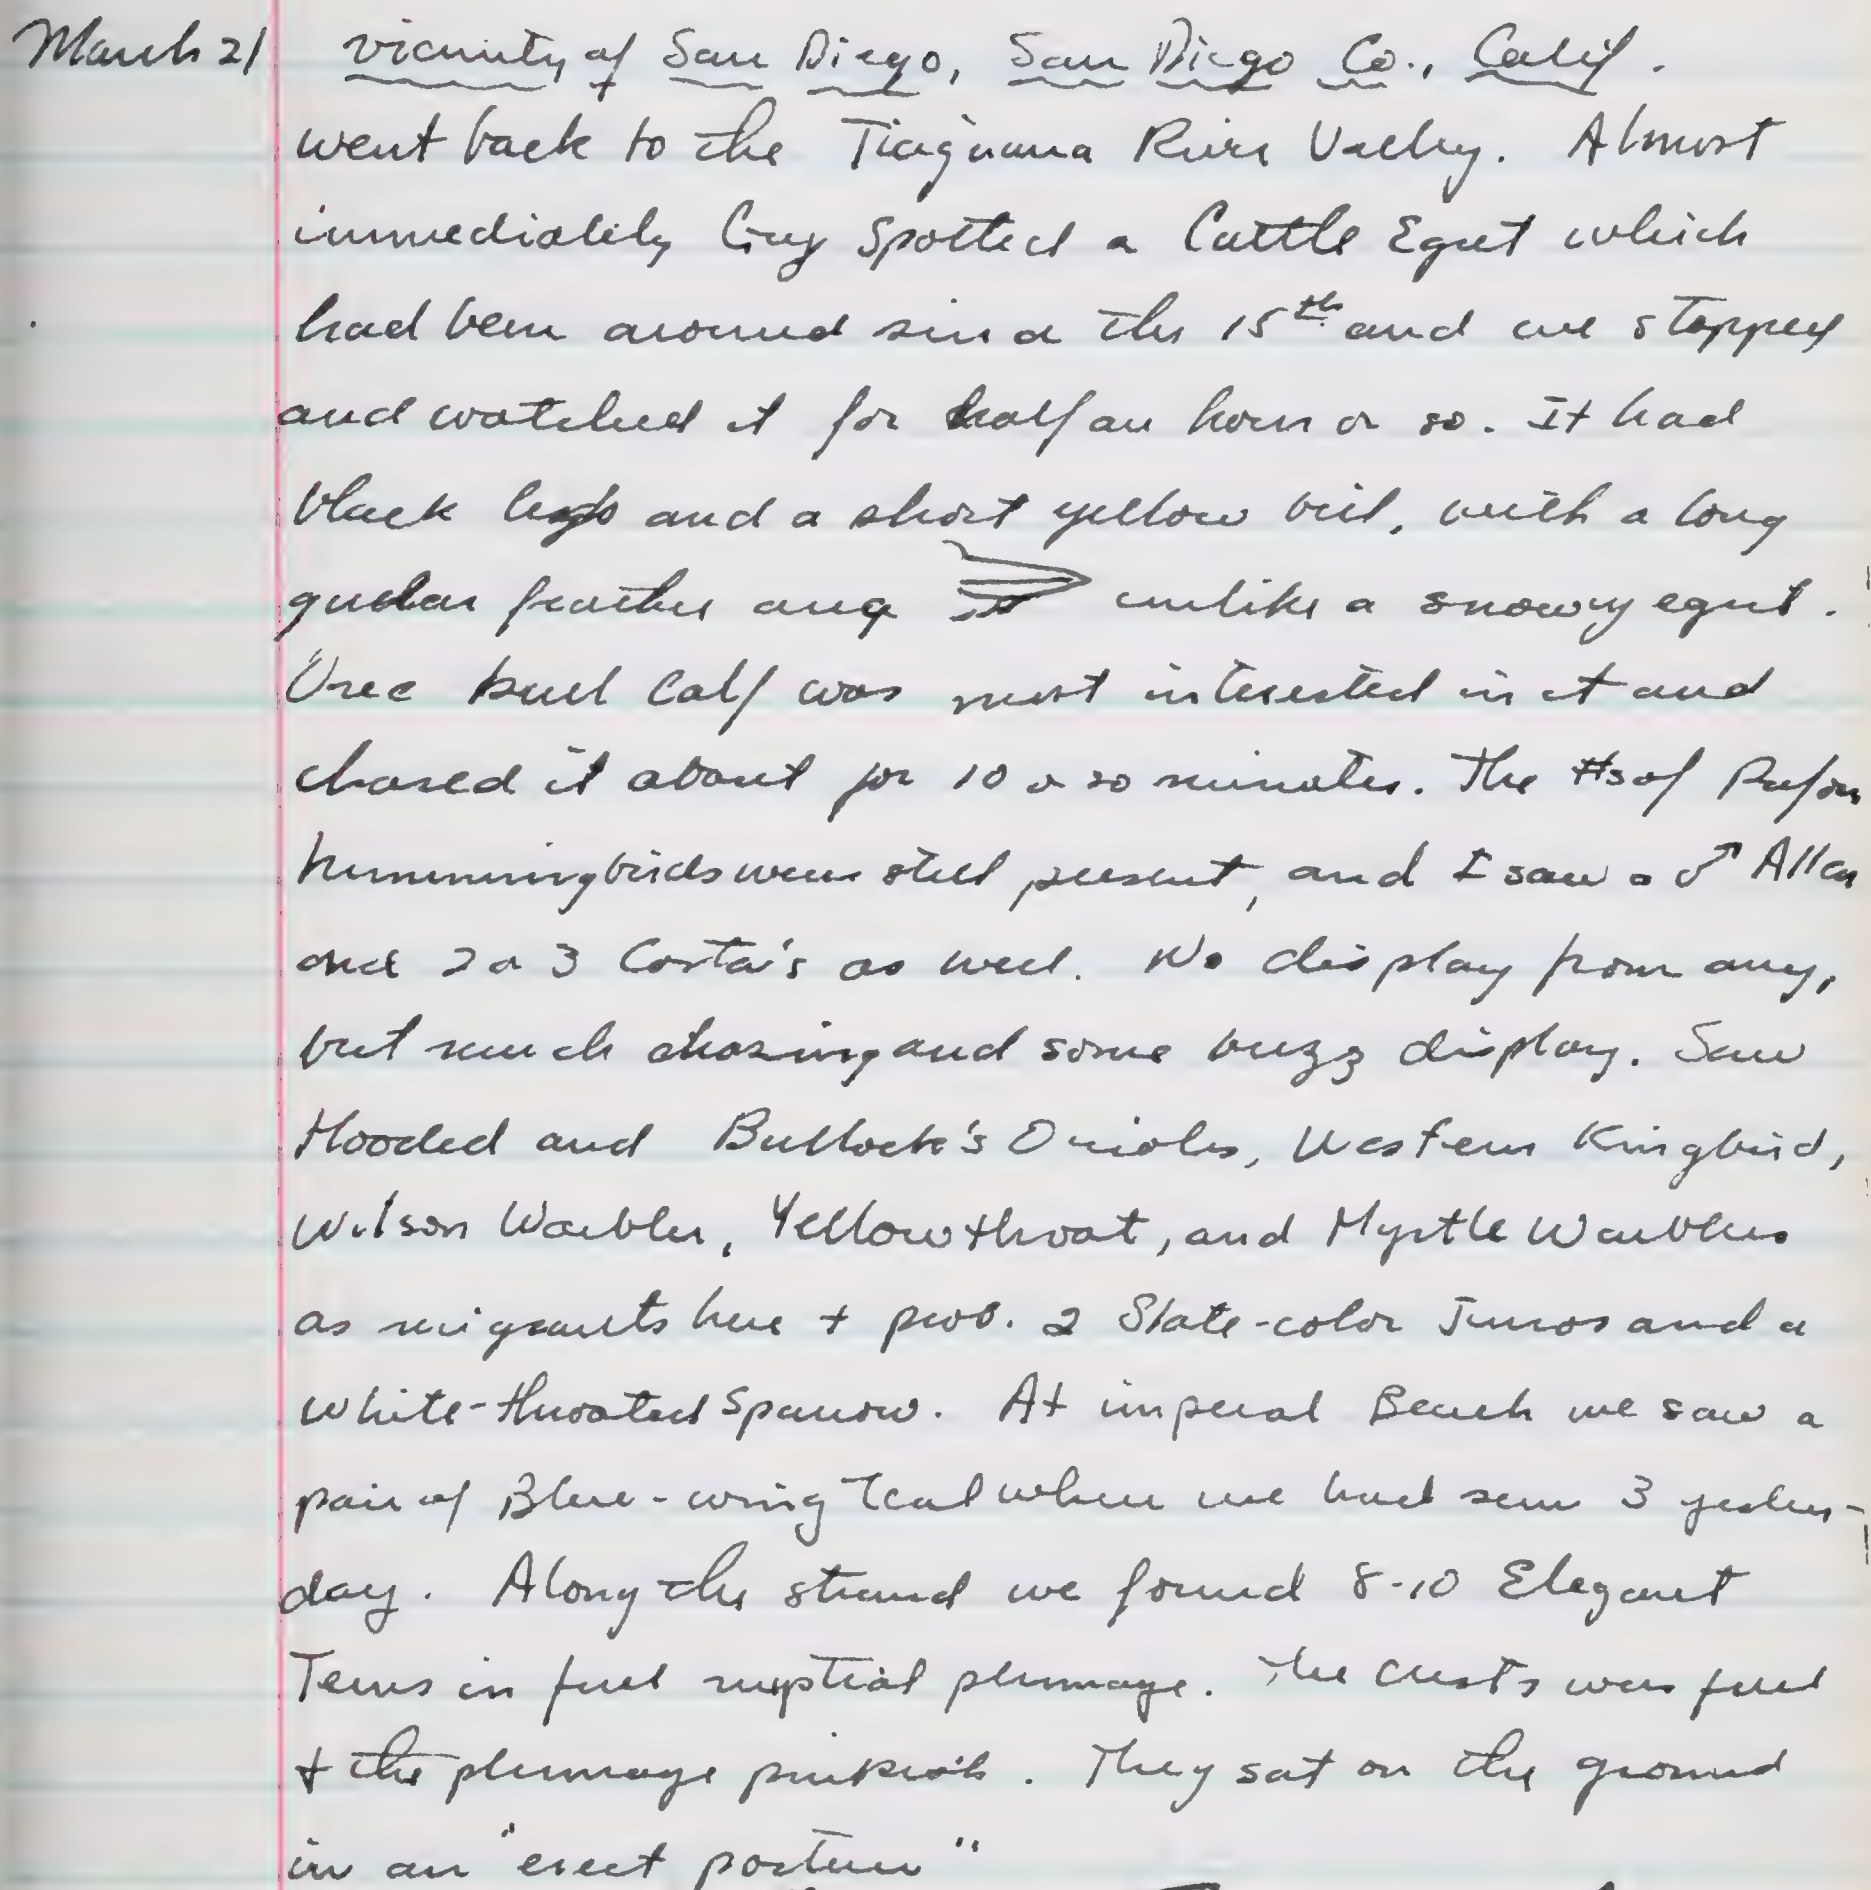 March 21 vicinity of San Diego, San Diego Co., Calif.
went back to the Tiajuana River Valley. Almost
immediately Guy spotted a Cattle Egret which
had been around since the 15th and we stopped
and watched it for half an hour or so. It had
black legs and a short yellow bill, with a long
gular feather area unlike a snowy egret.
One bull calf was most interested in it and
chased it about for 10 or so minutes. The #s of Rufous
hummingbirds were still present, and I saw a ♂ Allen
and 2 or 3 Costa's as well. No display from any,
but much chasing and some buzz display. Saw
Hooded and Bullock's Orioles, Western Kingbird,
Wilson Warbler, Yellowthroat, and Myrtle Warblers
as migrants here + prob. 2 Slate-color Juncos and a
White-throated Sparrow. At imperal Beach we saw a
pair of Blue-wing Teal where we had seen 3 yester-
day. Along the strand we found 8-10 Elegant
Terns in full nuptial plumage. The crests were full
+ the plumage pinkish. They sat on the ground
in an "erect posture"